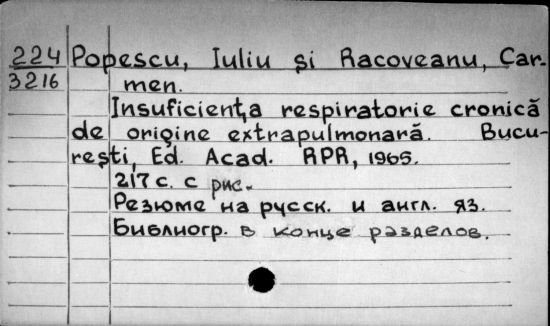 224 Popescu, Iuliu și Racoveanu, Car-
3216 men.
Insuficiența respiratorie cronică
de origine extrapulmonară. Bucu-
rești, Ed. Acad. RPR, 1965.
217 с. с рис.
Резюме на русск. и англ. яз.
Библиогр. в конце разделов.